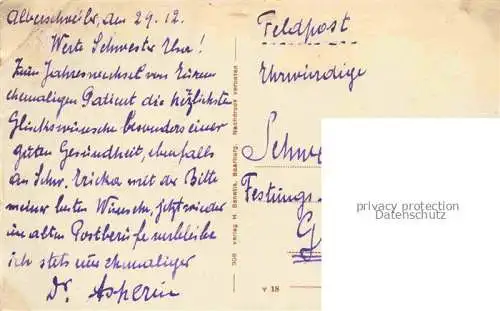 Alberschweiler, den 29.12.
Werte Schwester Una!
Zum Jahreswechsel von Eurem
ehemaligen Patient die herzlichsten
Glückswünsche besonders einer
guten Gesundheit, ebenfalls
an Schw. Ericka mit der Bitte
meiner besten Wünsche, jetzt wieder
im alten Postberufe verbleibe
ich stets euer ehemaliger
Dr. Asperin
308 Verlag H. Saarburg. Nachdruck verboten
V 18
Feldpost
Ehrwürdige
Schwe
Festungs
privacy protection
Datenschutz